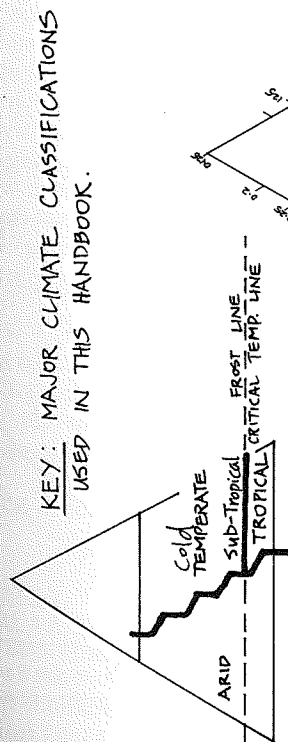 KEY: MAJOR CLIMATE CLASSIFICATIONS
USED IN THIS HANDBOOK.
Cold
TEMPERATE
ARID
Sub-Tropical
TROPICAL
FROST LINE
CRITICAL TEMP. LINE